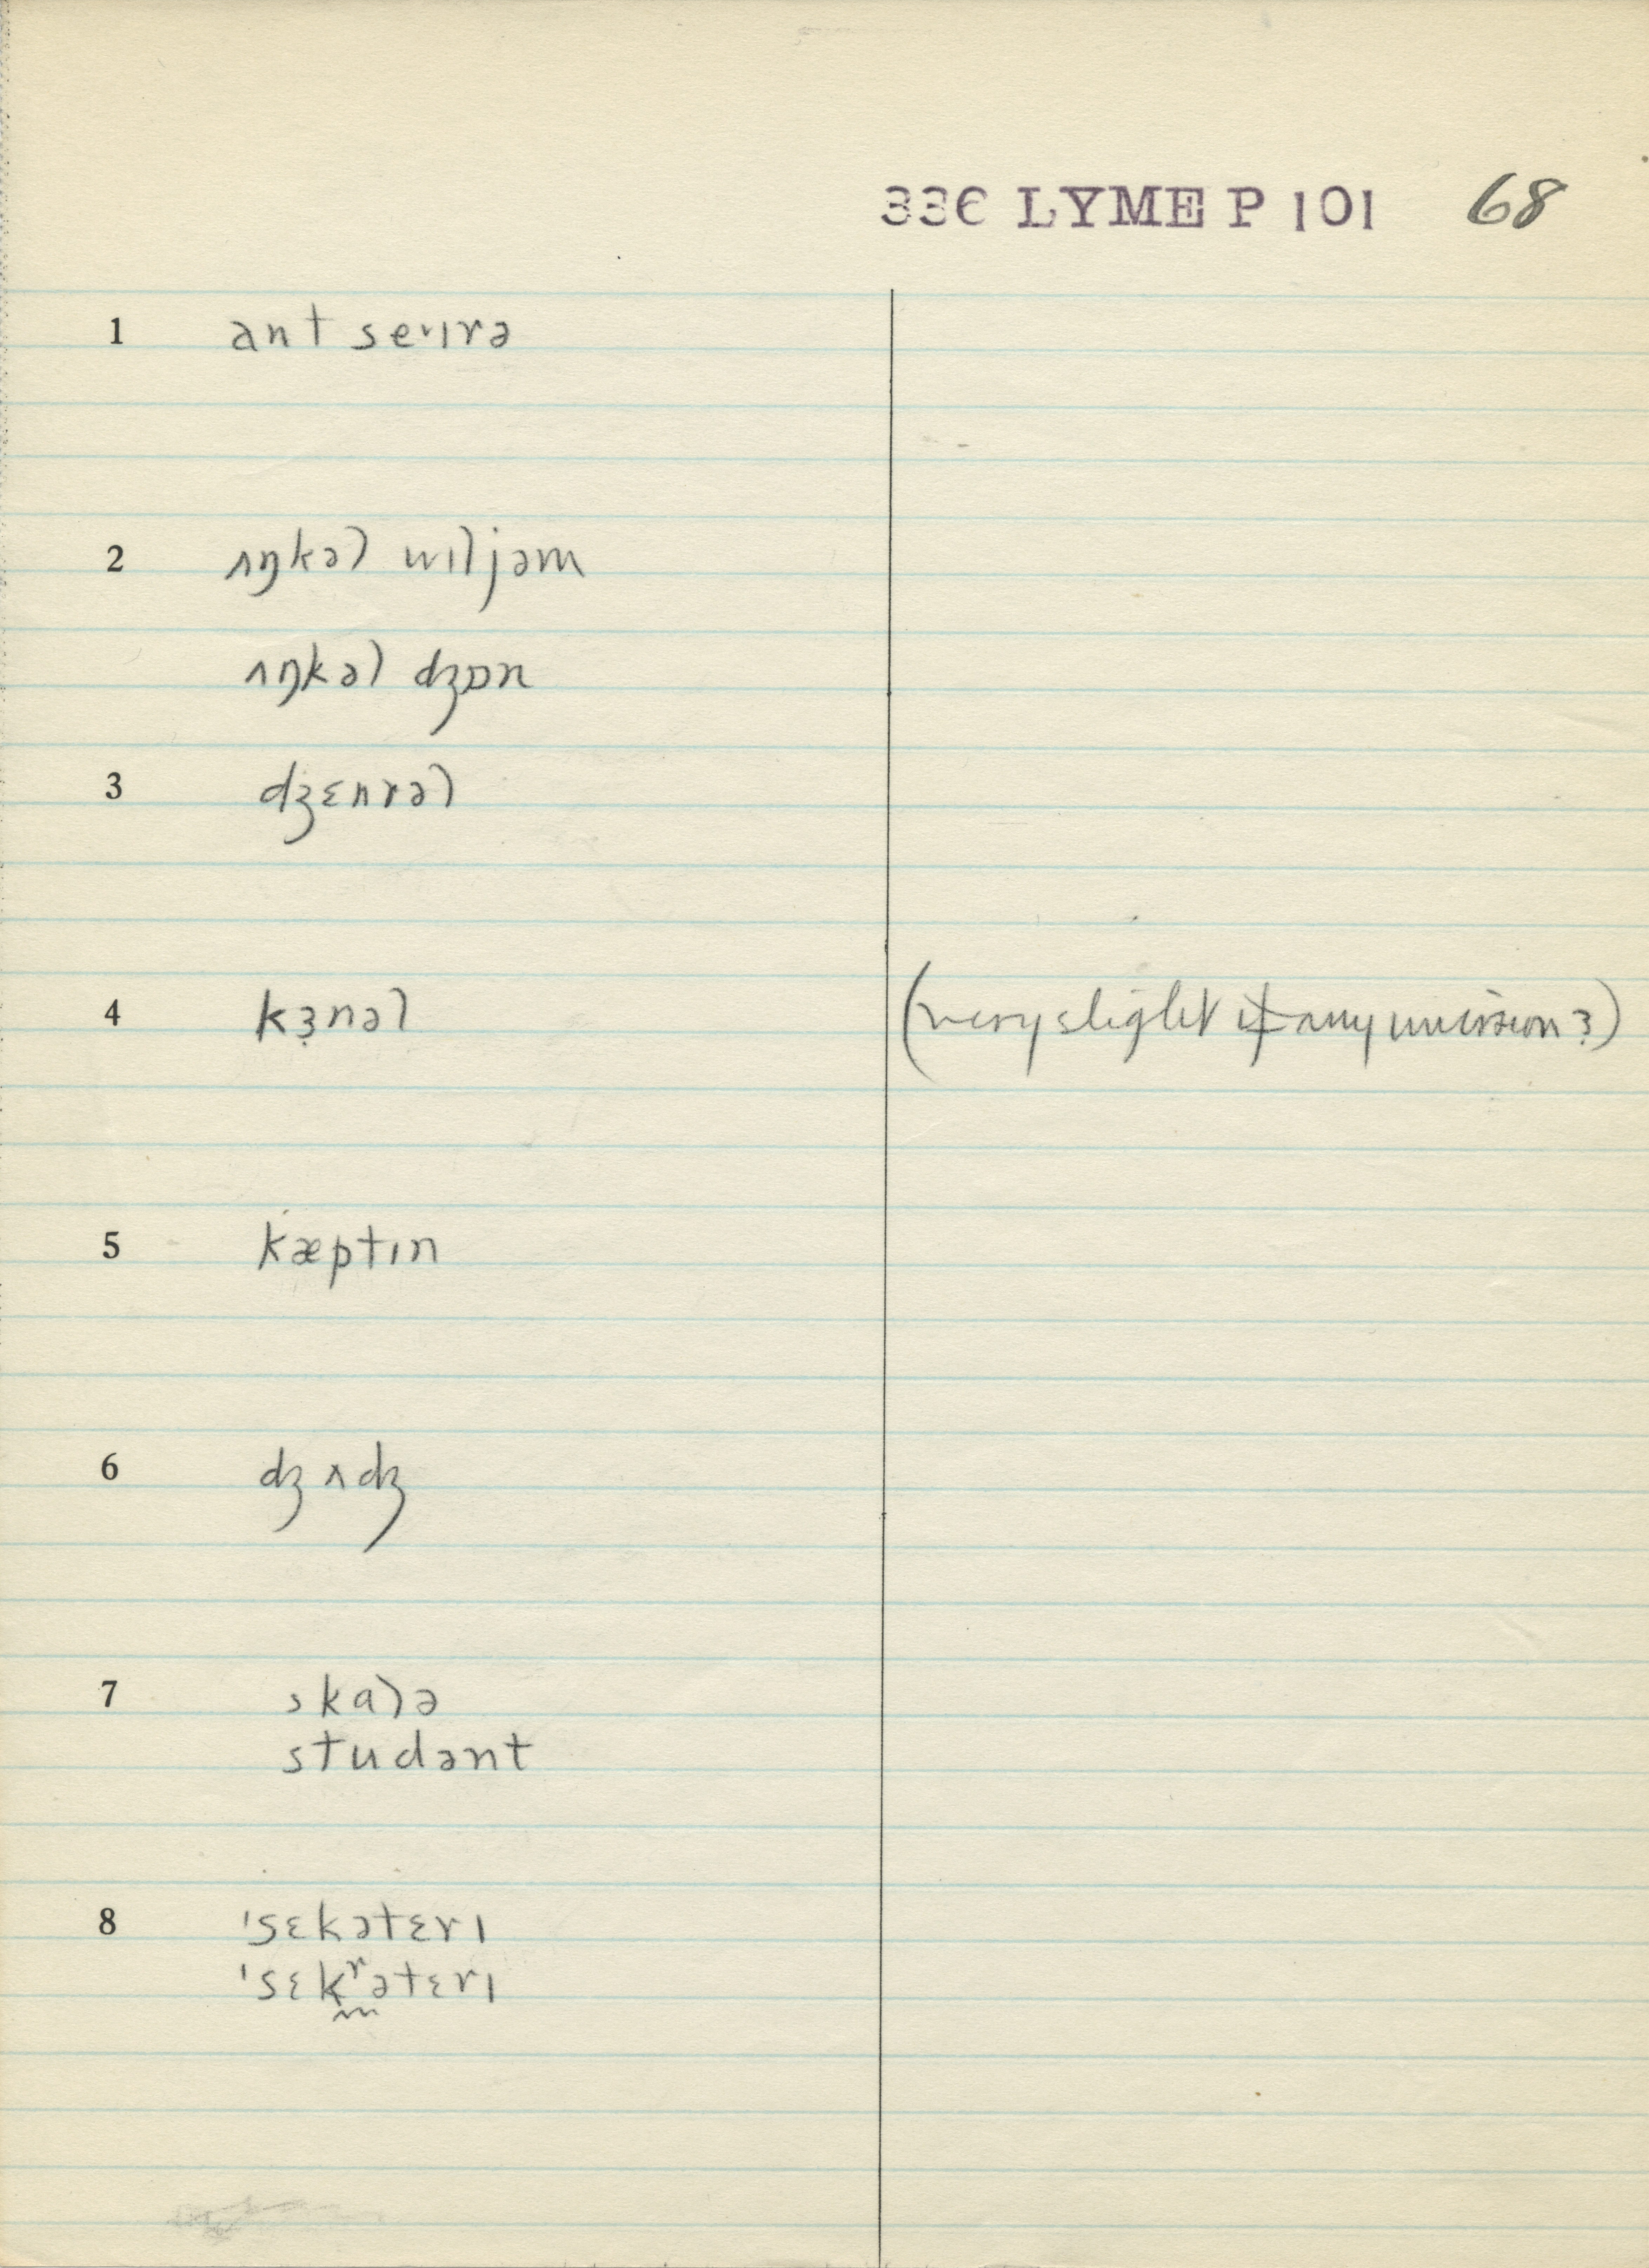 336 LYME P 101 68
1 ant seˑɪrə
2 ʌŋkəl wɪljəm
ʌŋkəl dʒɒn
3 dʒɛnrəl
4 kɜ̣nəl (very slight if any inversion ɜ̣)
5 kæptɪn
6 dʒʌdʒ
7 skalə
studənt
8 ˈsɛkətɛrɪ
ˈsɛkʳətɛrɪ